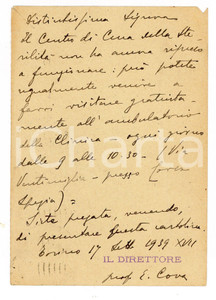 Distintissima Signora
il Centro di Cura della Ste-
rilità non ha ancora ripreso
a funzionare: può potete
ugualmente venire a
farvi visitare gratuita-
mente all'ambulatorio
della Clinica ogni giorno
dalle 9 alle 10.30 - (Via
Ventimiglia - presso Corso
Spezia) =
Siete pregata, venendo,
di presentare questa cartolina.
Torino 17 Sett 1939 XVII
IL DIRETTORE
prof E. Cova